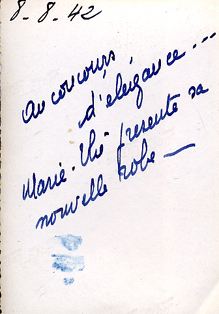 8-8-42
au concours
d'élégance...
Marie-Thé présente sa
nouvelle robe —